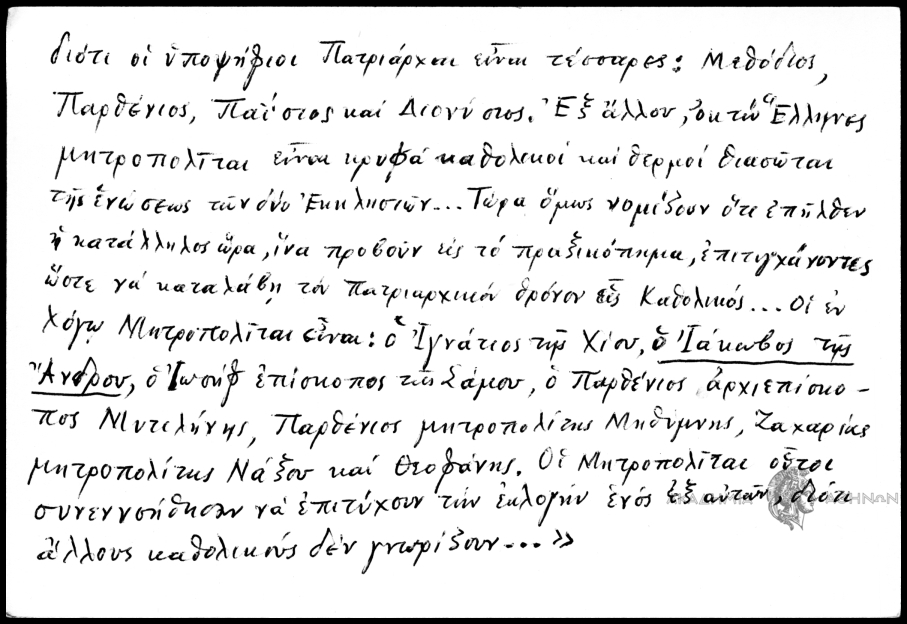 διότι οἱ ὑποψήφιοι Πατριάρχαι εἶναι τέσσαρες: Μεθόδιος,
Παρθένιος, Παΐσιος καί Διονύσιος. Ἐξ ἄλλου, ὀκτώ Ἕλληνες
μητροπολῖται εἶναι κρυφά καθολικοί καί θερμοί θιασῶται
τῆς ἑνώσεως τῶν δύο Ἐκκλησιῶν... Τώρα ὅμως νομίζουν ὅτι ἐπῆλθεν
ἡ κατάλληλος ὥρα, ἵνα προβοῦν εἰς τό πραξικόπημα, ἐπιτυγχάνοντες
ὥστε νά καταλάβῃ τόν Πατριαρχικόν θρόνον εἷς Καθολικός... Οἱ ἐν
λόγῳ Μητροπολῖται εἶναι: ὁ Ἰγνάτιος τῆς Χίου, ὁ Ἰάκωβος τῆς
Ἄνδρου, ὁ Ἰωσήφ ἐπίσκοπος τῆς Σάμου, ὁ Παρθένιος ἀρχιεπίσκο-
πος Μυτελήνης, Παρθένιος μητροπολίτης Μηθύμνης, Ζαχαρίας
μητροπολίτης Νάξου καί Θεοφάνης. Οἱ Μητροπολῖται οὗτοι
συνεννοήθησαν νά ἐπιτύχουν τήν ἐκλογήν ἑνός ἐξ αὐτῶν, διότι
ἄλλους καθολικούς δέν γνωρίζουν...»